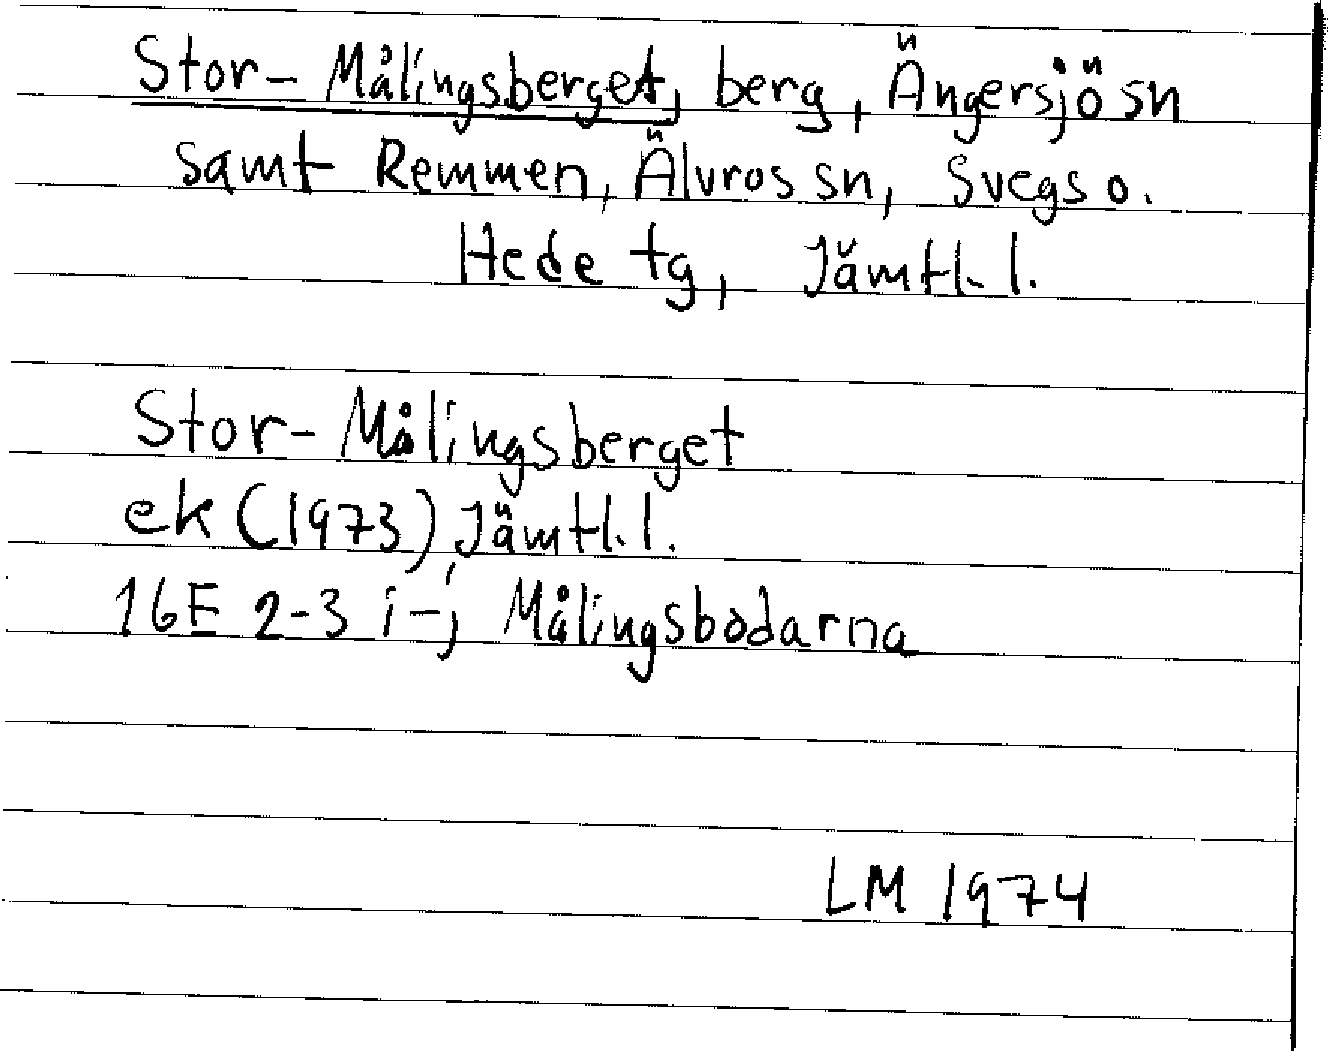 Stor-Målingsberget, berg, Ängersjö sn
samt Remmen, Älvros sn, Svegs o.
Hede tg, Jämtl. l.
Stor-Målingsberget
ek (1973) Jämtl. l.
16E 2-3 i-j Målingsbodarna
LM 1974